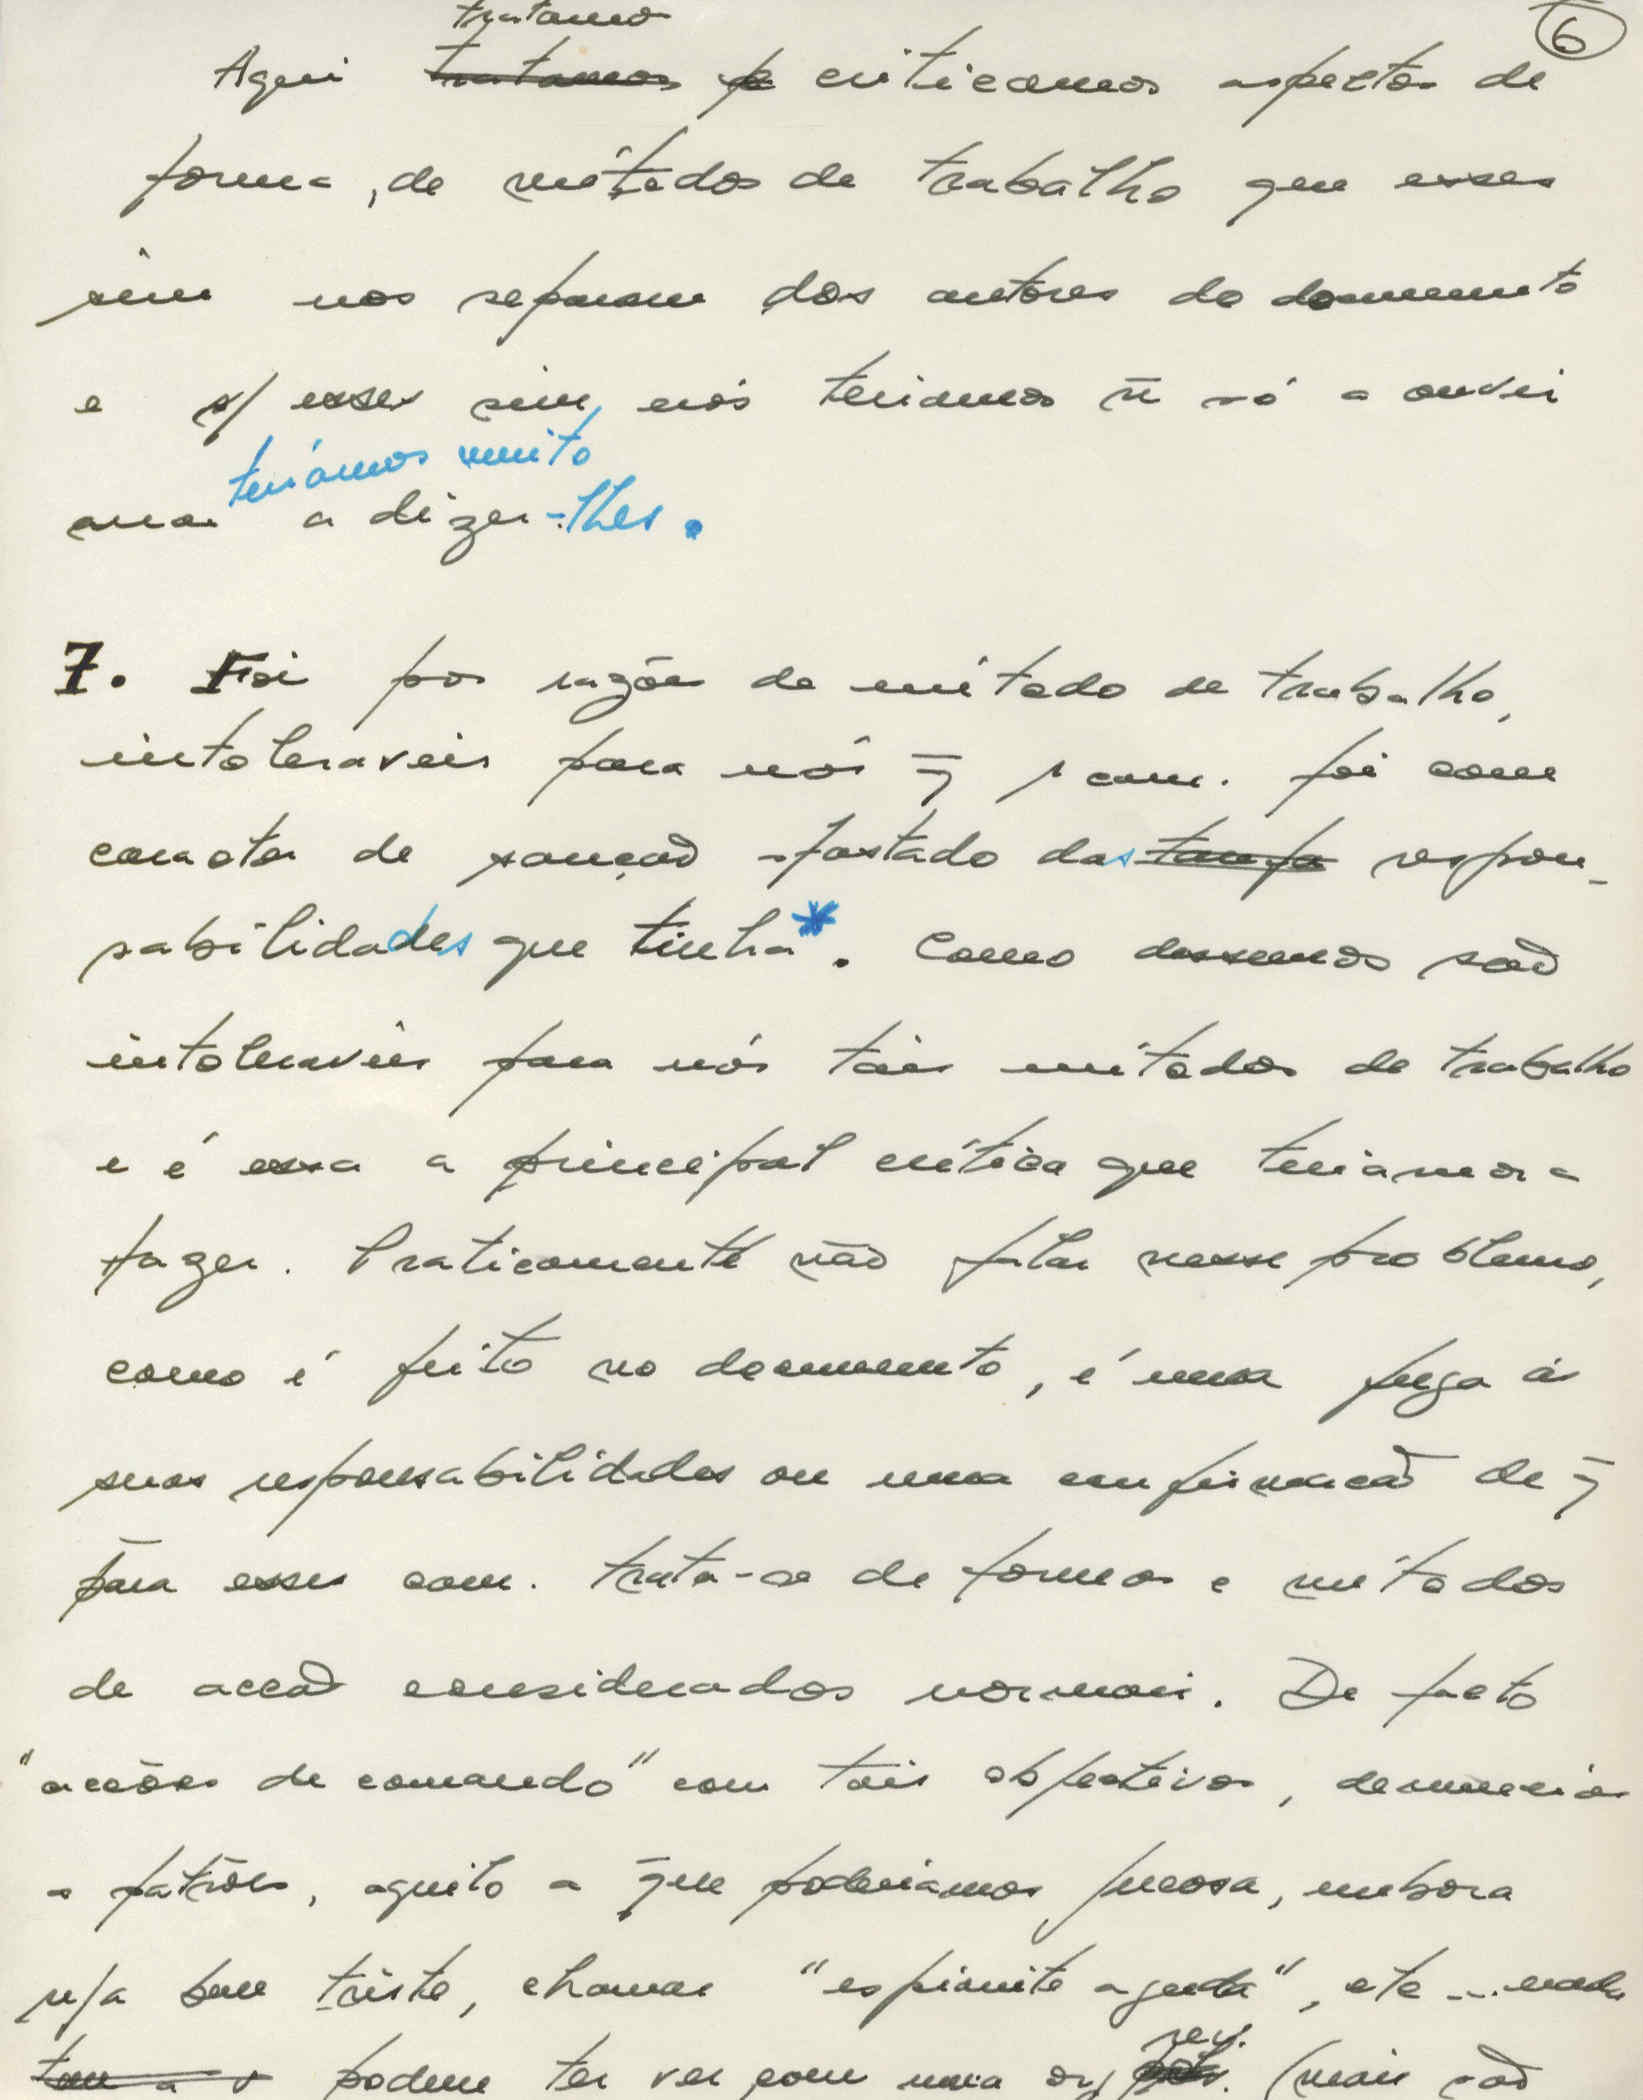 6
tratamos
Aqui tratamos p criticamos aspectos de
forma, de métodos de trabalho que esses
sim nos separam dos autores do documento
e s/ esses sim, nós teriamos ñ só a ouvir
teriamos muito
mas a dizer-lhes.
7. Foi por razões de método de trabalho,
intoleraveis para nós q̄ 1 cam. foi com
caracter de sanção afastado das tarefa respon-
sabilidades que tinha*. Como dissemos são
intoleraveis para nós tais métodos de trabalho
e é essa a principal crítica que teriamos a
fazer. Praticamente não falar nesse problema,
como é feito no documento, é uma fuga às
suas responsabilidades ou uma confirmação de q̄
para esses cam. trata-se de formas e métodos
de acção considerados normais. De facto
"acções de comando" com tais objectivos, denuncias
a patrões, aquilo a que poderiamos, embora
seja bem triste, chamar "espionite aguda", etc... nada
rev.
podem ter ver com uma org. (mais são